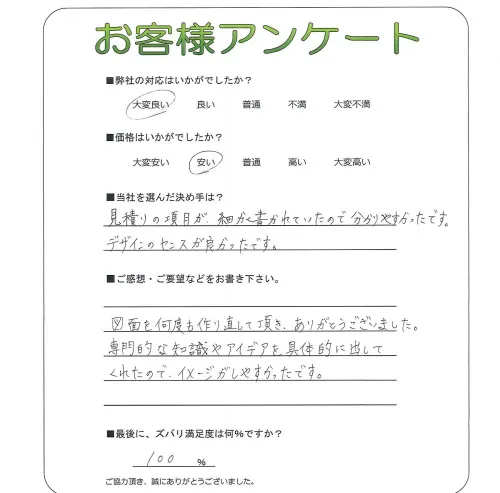 お客様アンケート
■弊社の対応はいかがでしたか？
大変良い 良い 普通 不満 大変不満
■価格はいかがでしたか？
大変安い 安い 普通 高い 大変高い
■当社を選んだ決め手は？
見積りの項目が細かく書かれていたので分かりやすかったです。
デザインのセンスが良かったです。
■ご感想・ご要望などをお書き下さい。
図面を何度も作り直して頂き、ありがとうございました。
専門的な知識やアイデアを具体的に出して
くれたので、イメージがしやすかったです。
■最後に、ズバリ満足度は何%ですか？
100 %
ご協力頂き、誠にありがとうございました。